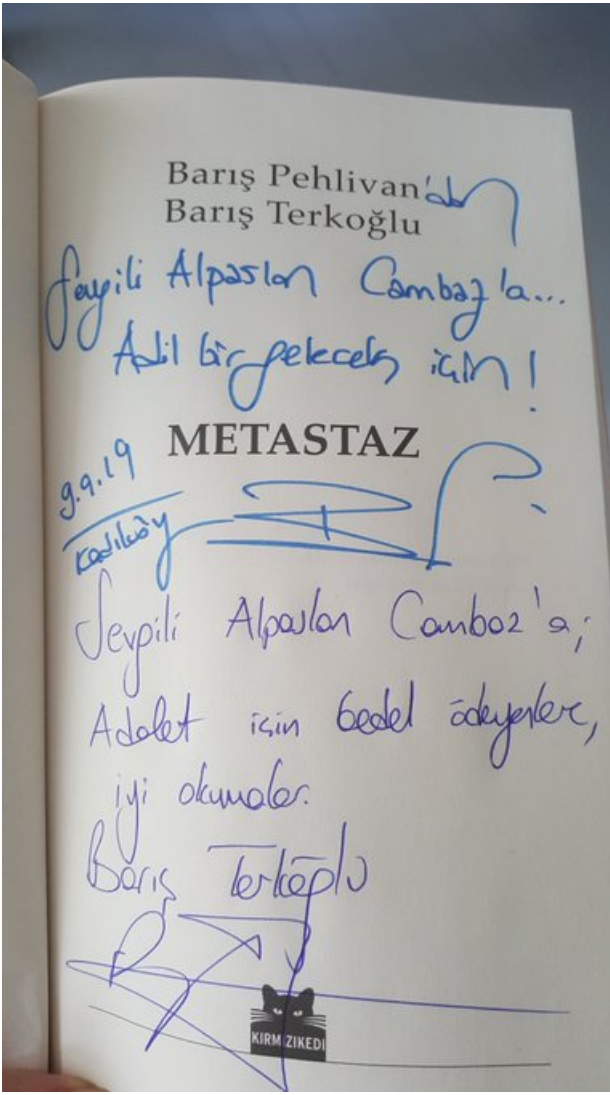 Barış Pehlivan'dan
Barış Terkoğlu
Sevgili Alpaslan Cambaz'a...
Adil bir gelecek için!
METASTAZ
9.9.19
Kadıköy
Sevgili Alpaslan Cambaz'a;
Adalet için bedel ödeyenlere,
iyi okumalar.
Barış Terkoğlu
KIRMIZIKEDI